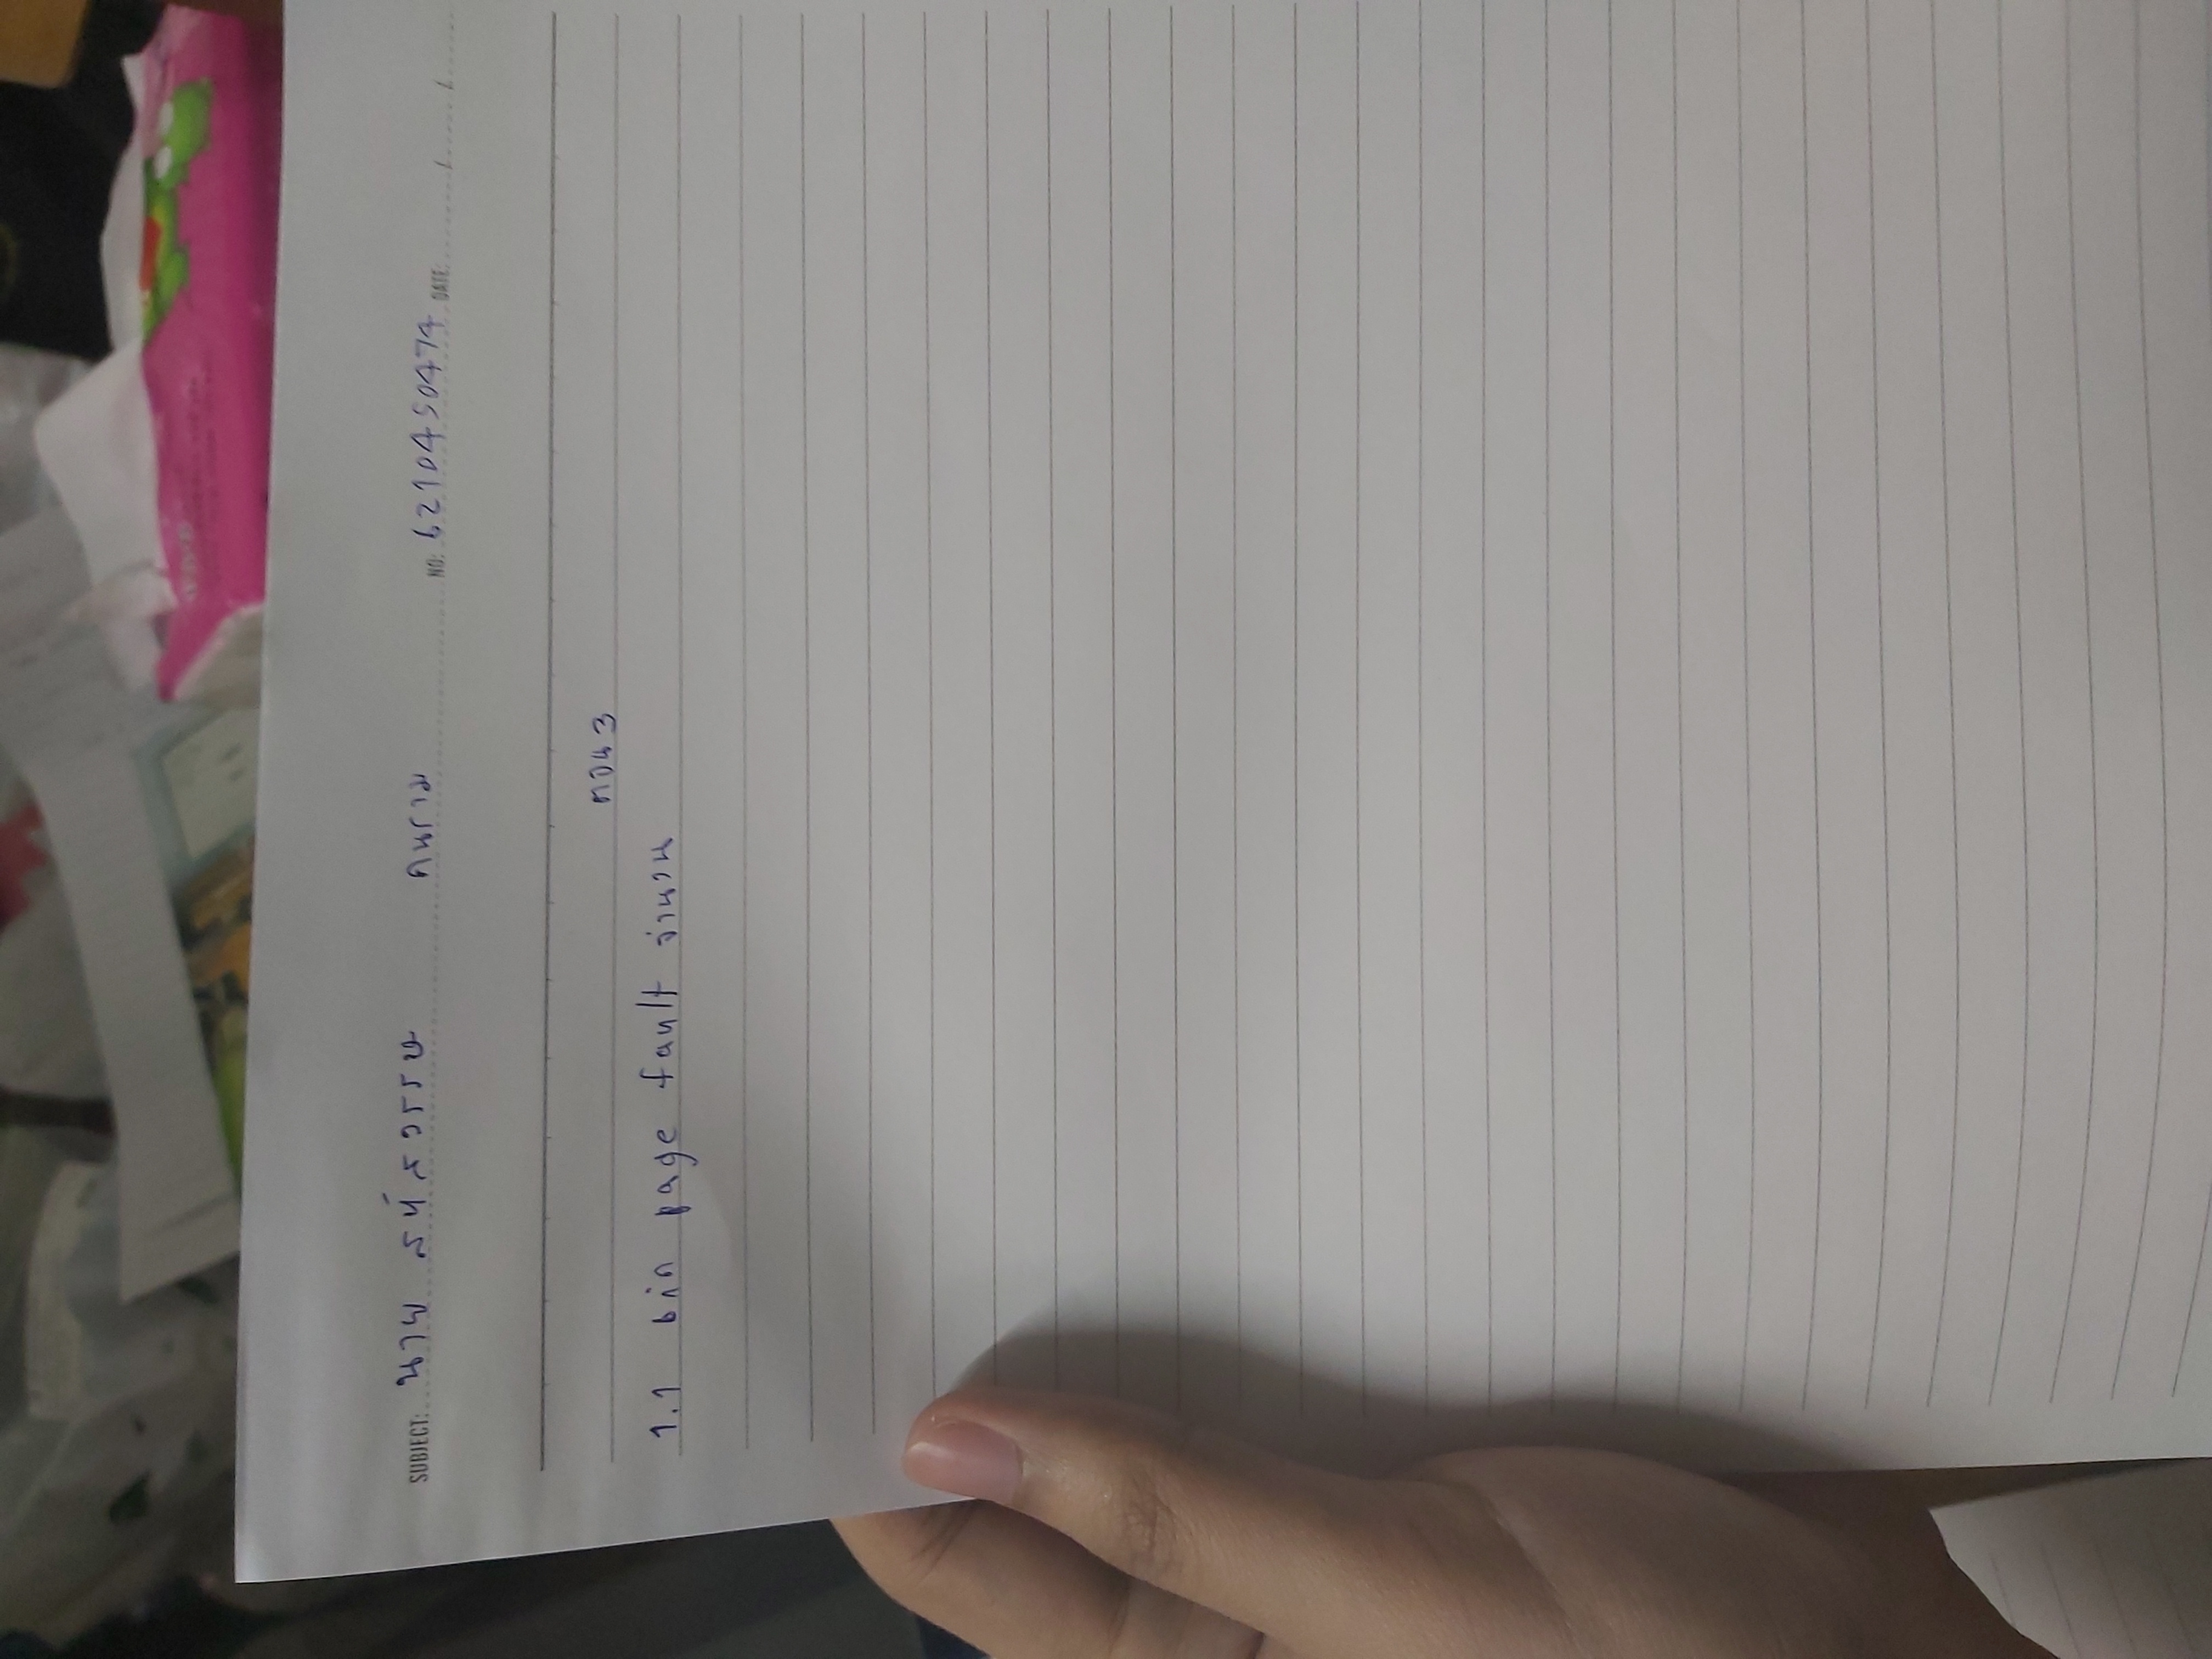 SUBJECT: นาย สหัสวรรษ คนราม NO: 6210450474 DATE: / /
ตอน 3
1.1 เกิด page fault จำนวน